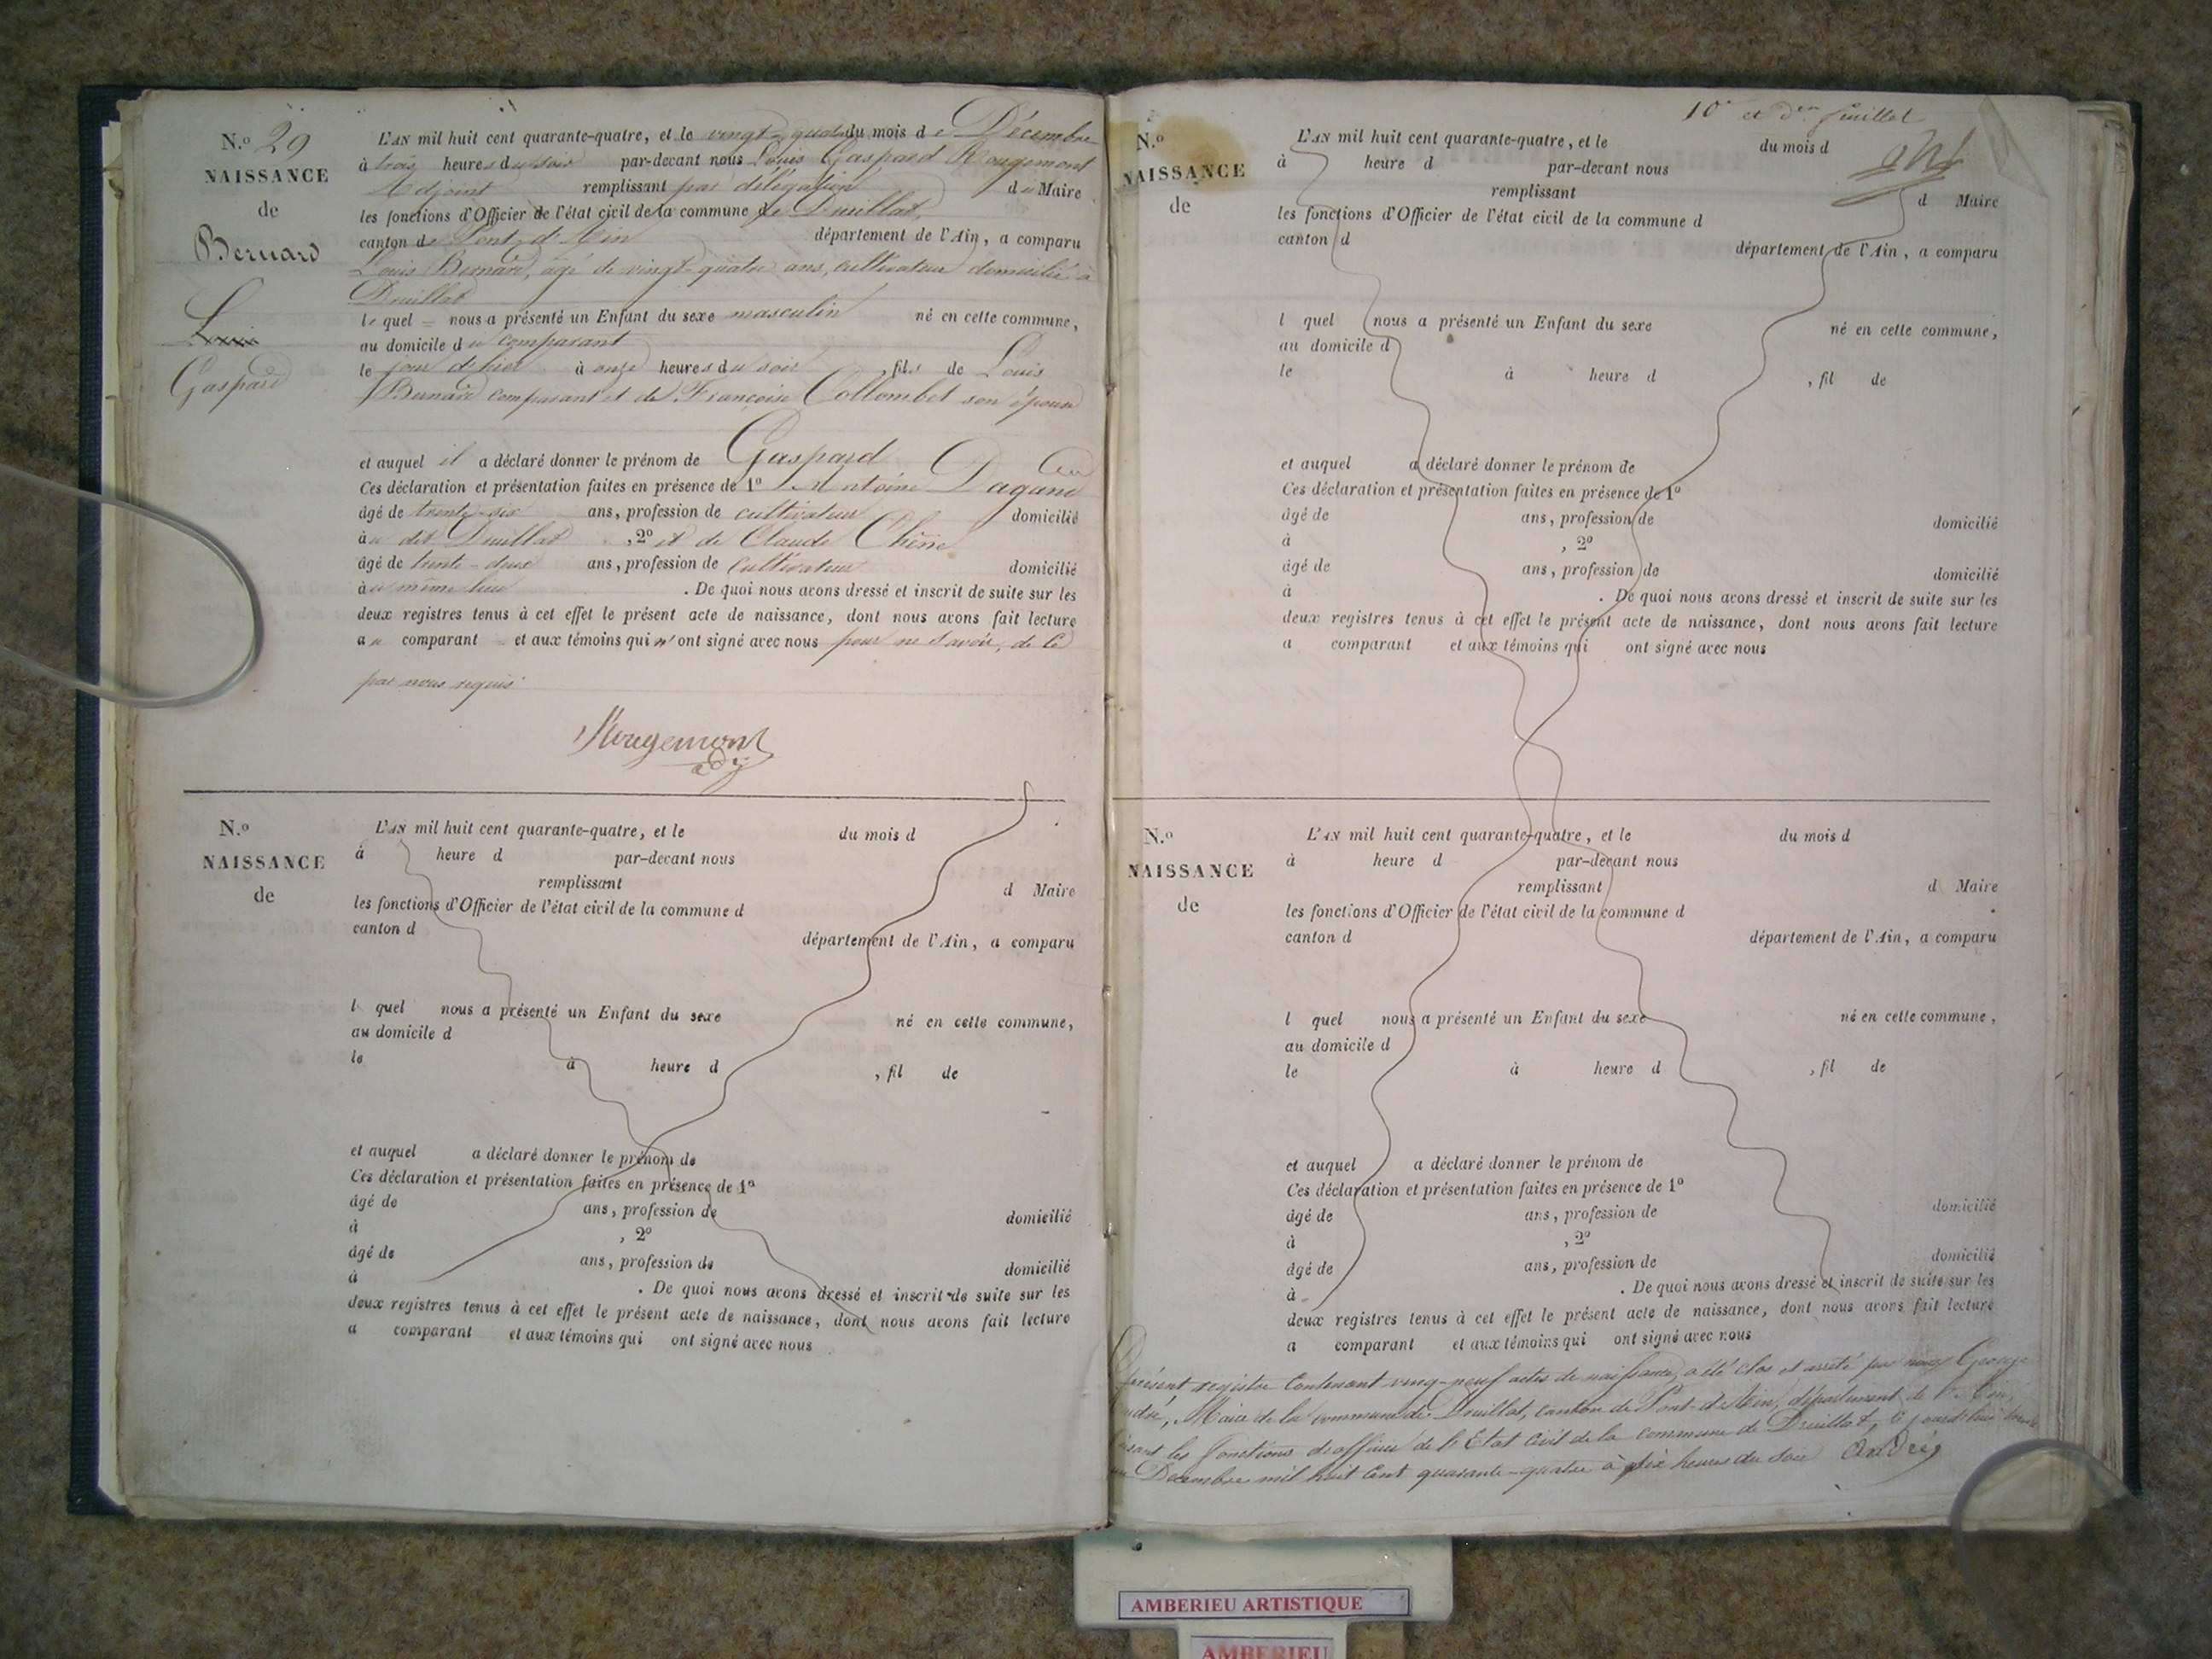 N.º 29
NAISSANCE
de
Bernard
Louis
Gaspard
L'AN mil huit cent quarante-quatre, et le vingt-quatre du mois de Décembre
à trois heures du soir par-devant nous Louis Gaspard Rougemont
Adjoint remplissant par délégation du Maire
les fonctions d'Officier de l'état civil de la commune de Druillat,
canton de Pont-d'Ain département de l'Ain, a comparu
Louis Bernard, âgé de vingt-quatre ans, cultivateur domicilié à
Druillat
le quel nous a présenté un Enfant du sexe masculin né en cette commune,
au domicile du comparant
le jour d'hier à onze heures du soir, fils de Louis
Bernard comparant et de Françoise Collombet son épouse
et auquel il a déclaré donner le prénom de Gaspard
Ces déclaration et présentation faites en présence de 1º Antoine Dagand
âgé de trente-six ans, profession de cultivateur domicilié
au dit Druillat, 2º et de Claude Chêne
âgé de trente-deux ans, profession de cultivateur domicilié
au même lieu. De quoi nous avons dressé et inscrit de suite sur les
deux registres tenus à cet effet le présent acte de naissance, dont nous avons fait lecture
au comparant et aux témoins qui n'ont signé avec nous pour ne savoir, de ce
par nous requis
Rougemont
adj
N.º
NAISSANCE
de
L'AN mil huit cent quarante-quatre, et le du mois d
à heure d par-devant nous
remplissant d Maire
les fonctions d'Officier de l'état civil de la commune d
canton d département de l'Ain, a comparu
l quel nous a présenté un Enfant du sexe né en cette commune,
au domicile d
le à heure d , fil de
et auquel a déclaré donner le prénom de
Ces déclaration et présentation faites en présence de 1º
âgé de ans, profession de domicilié
à , 2º
âgé de ans, profession de domicilié
à . De quoi nous avons dressé et inscrit de suite sur les
deux registres tenus à cet effet le présent acte de naissance, dont nous avons fait lecture
a comparant et aux témoins qui ont signé avec nous
10e et der feuillet
N.º
NAISSANCE
de
L'AN mil huit cent quarante-quatre, et le du mois d
à heure d par-devant nous
remplissant d Maire
les fonctions d'Officier de l'état civil de la commune d
canton d département de l'Ain, a comparu
l quel nous a présenté un Enfant du sexe né en cette commune,
au domicile d
le à heure d , fil de
et auquel a déclaré donner le prénom de
Ces déclaration et présentation faites en présence de 1º
âgé de ans, profession de domicilié
à , 2º
âgé de ans, profession de domicilié
à . De quoi nous avons dressé et inscrit de suite sur les
deux registres tenus à cet effet le présent acte de naissance, dont nous avons fait lecture
a comparant et aux témoins qui ont signé avec nous
N.º
NAISSANCE
de
L'AN mil huit cent quarante-quatre, et le du mois d
à heure d par-devant nous
remplissant d Maire
les fonctions d'Officier de l'état civil de la commune d
canton d département de l'Ain, a comparu
l quel nous a présenté un Enfant du sexe né en cette commune,
au domicile d
le à heure d , fil de
et auquel a déclaré donner le prénom de
Ces déclaration et présentation faites en présence de 1º
âgé de ans, profession de domicilié
à , 2º
âgé de ans, profession de domicilié
à . De quoi nous avons dressé et inscrit de suite sur les
deux registres tenus à cet effet le présent acte de naissance, dont nous avons fait lecture
a comparant et aux témoins qui ont signé avec nous
présent registre Contenant vingt-neuf actes de naissance, a été clos et arrêté par nous George
André, Maire de la commune de Druillat, canton de Pont-d'Ain, département de l'Ain,
faisant les fonctions d'officier de l'Etat Civil de la commune de Druillat, le jourd'hui trente
un Décembre mil huit Cent quarante-quatre à dix heures du soir André
AMBERIEU ARTISTIQUE
AMBERIEU